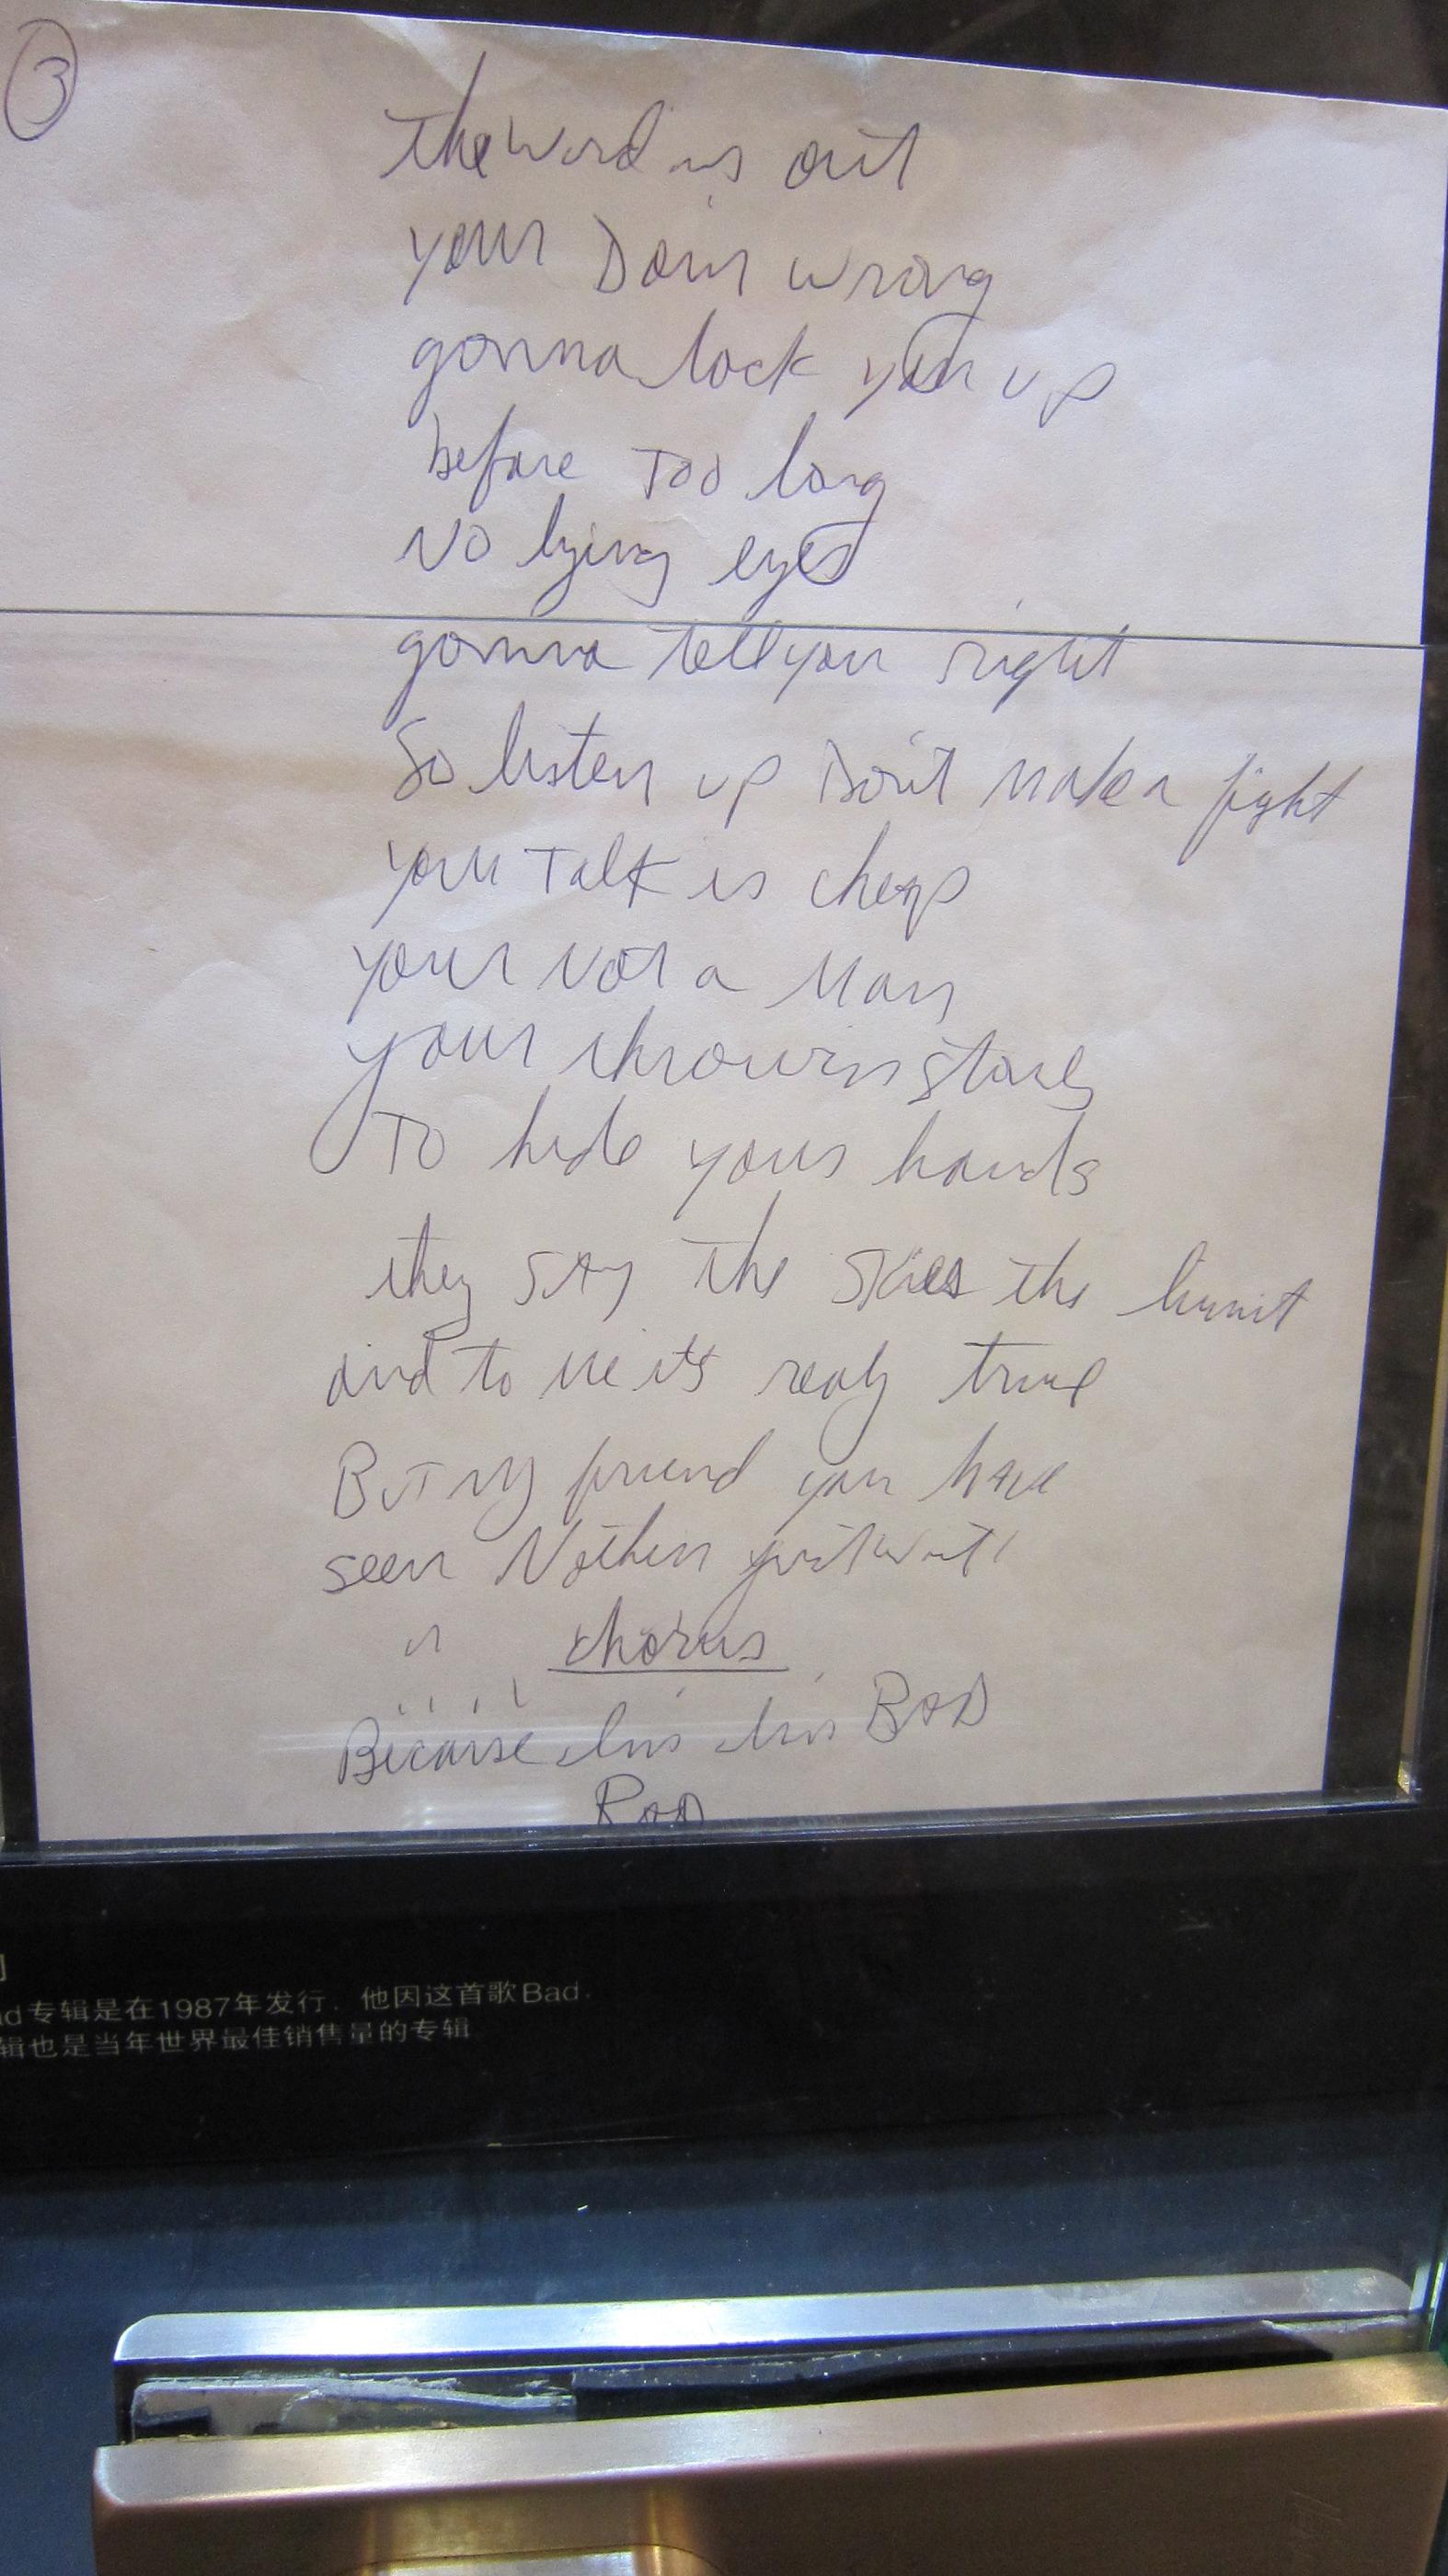 3
the word is out
your Doin wrong
gonna lock you up
before Too long
No lying eyes
gonna tell you right
So listen up Don't make a fight
your Talk is cheap
your Not a Man
your throwin stones
To hide your hands
they SAy the skies the limit
and to Me it's realy true
BuT my friend you have
seen Nothin just wait
chorus
Because Im Im BAD
BAD
ad专辑是在1987年发行. 他因这首歌Bad.
辑也是当年世界最佳销售量的专辑